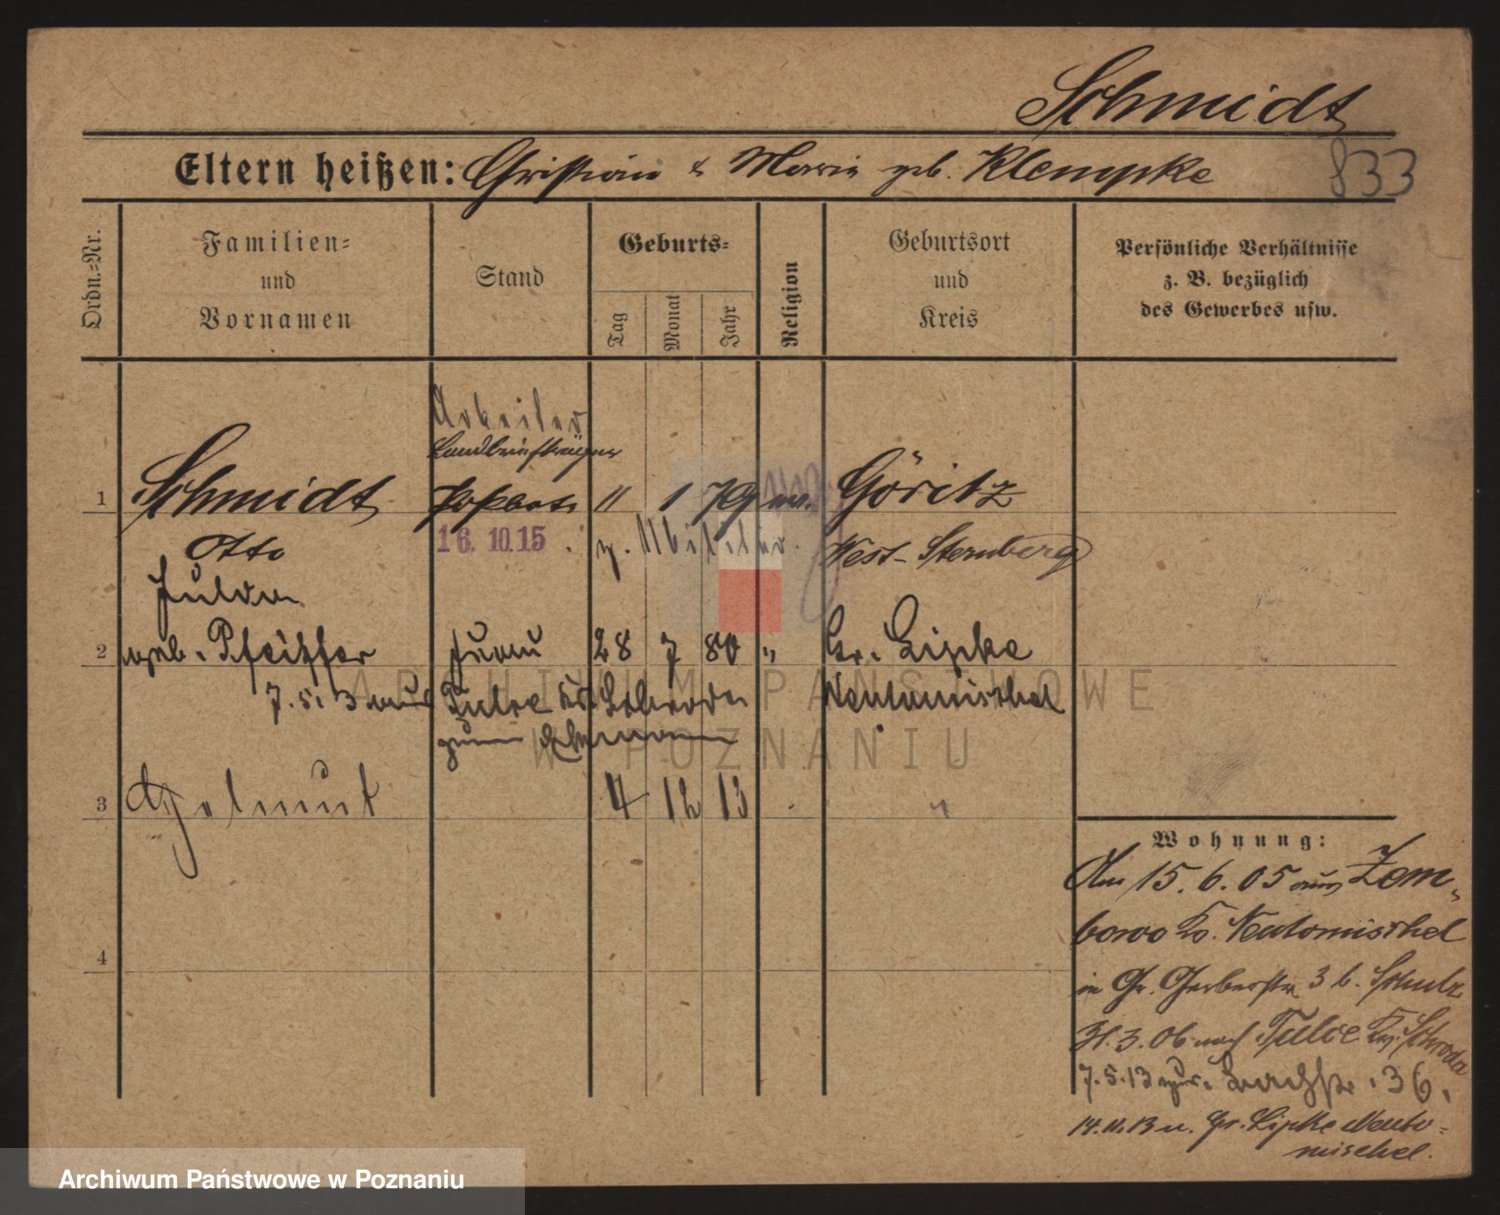 Schmidt
Eltern heißen: Christian & Marie geb. Klempke
833
Ordn.-Nr.
Familien-
und
Vornamen
Stand
Geburts-
Tag
Monat
Jahr
Religion
Geburtsort
und
Kreis
Persönliche Verhältnisse
z. B. bezüglich
des Gewerbes usw.
Arbeiter
Landbriefträger
1 Schmidt Postbote 11 1 79 ev. Göritz
Otto 16.10.15 z. Militär West-Sternberg
2 geb. Pfeiffer Frau 28 7 80 " Gr. Lipke
7.5.13 aus Tulce Kr. Schroda Neutomischel
zum Ehemann
3 Helmut 4 12 13 "
4
Wohnung:
Am 15.6.05 aus Zem-
bowo Kr. Neutomischel
in Gr. Gerberstr 3 b. Schulz
31.3.06 nach Tulce Kr. Schroda
7.5.13 zur. 36.
14.11.13 n. Gr. Lipke Neuto-
mischel.
ARCHIWUM PAŃSTWOWE
W POZNANIU
Archiwum Państwowe w Poznaniu